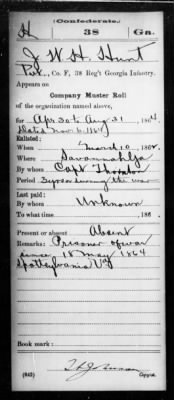 (Confederate.)
H 38 Ga.
J W H Hunt
Pvt., Co. F, 38 Reg't Georgia Infantry.
Appears on
Company Muster Roll
of the organization named above,
for Apr 30 to Aug 31, 1864.
Dated Nov 6, 1864
Enlisted:
When March 10, 1862
Where Savannah Ga
By whom Capt Thornton
Period 3 years during the war
Last paid:
By whom Unknown
To what time , 186 .
Present or absent Absent
Remarks: Prisoner of war
since 18 May 1864
Spottsylvania Va
Book mark:
(642) Copyist.